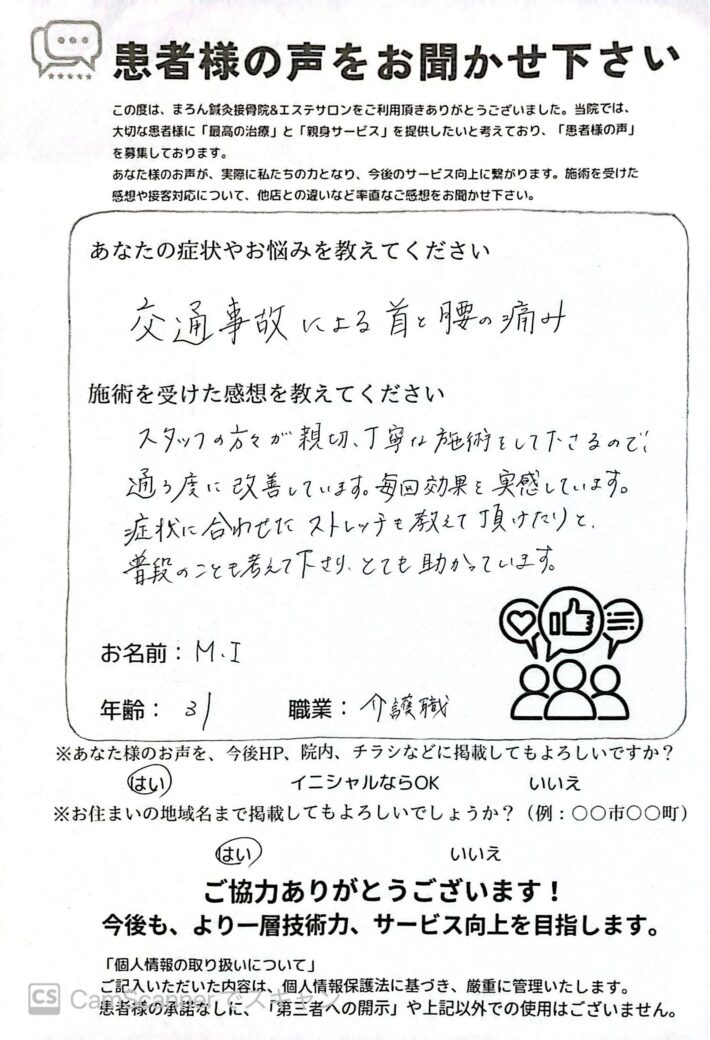 患者様の声をお聞かせ下さい
この度は、まろん鍼灸接骨院&エステサロンをご利用頂きありがとうございました。当院では、
大切な患者様に「最高の治療」と「親身サービス」を提供したいと考えており、「患者様の声」
を募集しております。
あなた様のお声が、実際に私たちの力となり、今後のサービス向上に繋がります。施術を受けた
感想や接客対応について、他店との違いなど率直なご感想をお聞かせ下さい。
あなたの症状やお悩みを教えてください
交通事故による首と腰の痛み
施術を受けた感想を教えてください
スタッフの方々が親切、丁寧な施術をして下さるので、
通う度に改善しています。毎回効果を実感しています。
症状に合わせたストレッチも教えて頂けたりと、
普段のことも考えて下さり、とても助かっています。
お名前：M.I
年齢：31 職業：介護職
※あなた様のお声を、今後HP、院内、チラシなどに掲載してもよろしいですか？
はい イニシャルならOK いいえ
※お住まいの地域名まで掲載してもよろしいでしょうか？（例：〇〇市〇〇町）
はい いいえ
ご協力ありがとうございます！
今後も、より一層技術力、サービス向上を目指します。
「個人情報の取り扱いについて」
ご記入いただいた内容は、個人情報保護法に基づき、厳重に管理いたします。
CS CamScanner でスキャン
患者様の承諾なしに、「第三者への開示」や上記以外での使用はございません。